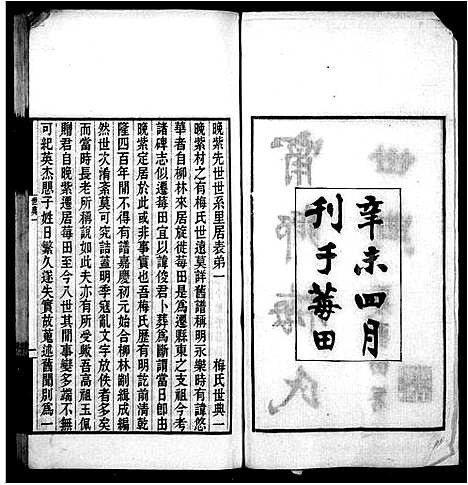 辛未四月
刊于莓田
晚紫先世世系里居表弟一 梅氏世典一
晚紫村之有梅氏世遠莫詳舊譜稱明永樂時有諱悠
華者自柳林來居旋徙莓田是爲遷縣東之支祖今考
諸碑志似遷莓田宜以諱俊君卜葬爲斷謂當日卽由
晚紫定居於此或非事實也吾梅氏歷有明訖前清乾
隆四百年閒不得有譜嘉慶初元始合柳林剏緝成編
然世次淆紊莫可究詰蓋明季寇亂文字放佚者多矣
而當時長老所稱說如此夫亦有所受歟吾高祖玉佩
贈君自晚紫遷居莓田至今才八世其閒事變多端不無
可紀英杰懸子姓日繁久遂失實故蒐述舊聞別爲一
世典一